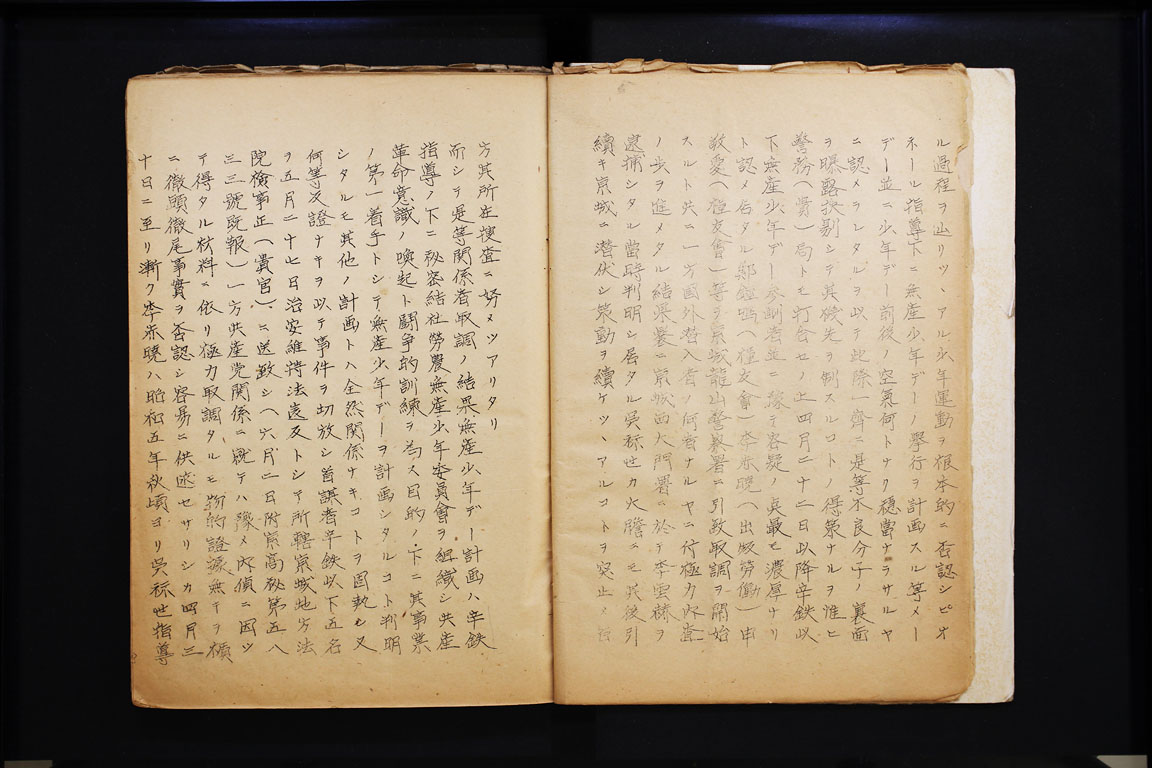 ル過程ヲ辿リツヽアル少年運動ヲ根本的ニ否認シピオ
ネール指導下ニ無産少年デー擧行ヲ計画スル等メー
デー並ニ少年デー前後ノ空氣何トナリ穏當ナラサルヤ
ニ認メラレタルヲ以テ此際一齊ニ是等不良分子ノ裏面
ヲ曝露抉剔シテ其機先ヲ制スルコトノ得策ナルヲ惟ヒ
警務(貴)局トモ打合セノ上四月二十二日以降辛鉄以
下無産少年デー参劃者並ニ豫テ容疑ノ点最モ濃厚ナリ
ト認メ居タル鄭鎧(槿友會)李赤曉(出版労働)申
敬愛(槿友會)等ヲ京城龍山警察署ニ引致取調ヲ開始
スルト共ニ一方國外潜入者ノ何者ナルヤニ付極力内査
ノ歩ヲ進メタル結果曩ニ京城西大門署ニ於テ李雲赫ヲ
逮捕シタル當時判明シ居タル呉祢世カ大膽ニモ其後引
續キ京城ニ潜伏シ策動ヲ續ケツヽアルコトヲ突止メ
方其所在捜査ニ努メツアリタリ
而シテ是等関係者取調ノ結果無産少年デー計画ハ辛鉄
指導ノ下ニ秘密結社労農無産少年委員會ヲ組織シ共産
革命意識ノ喚起ト闘争的訓練ヲ為ス目的ノ下ニ其事業
ノ第一着手トシテ無産少年デーヲ計画シタルコト判明
シタルモ其他ノ計画トハ全然関係ナキコトヲ固執シ又
何等反證ナキヲ以テ事件ヲ切放シ首謀者辛鉄以下五名
ヲ五月二十七日治安維持法違反トシテ所轄京城地方法
院檢事正(貴官)ニ送致シ(六月二日附京高秘第五八
三三號既報)一方共産党関係ニ就テハ豫メ内偵ニ因ツ
テ得タル材料ニ依リ極力取調タルモ物的證據無キヲ倾
ニ徹頭徹尾事實ヲ否認シ容易ニ供述セサリシカ四月三
十日ニ至リ漸ク李赤曉ハ昭和五年秋頃ヨリ呉祢世指導